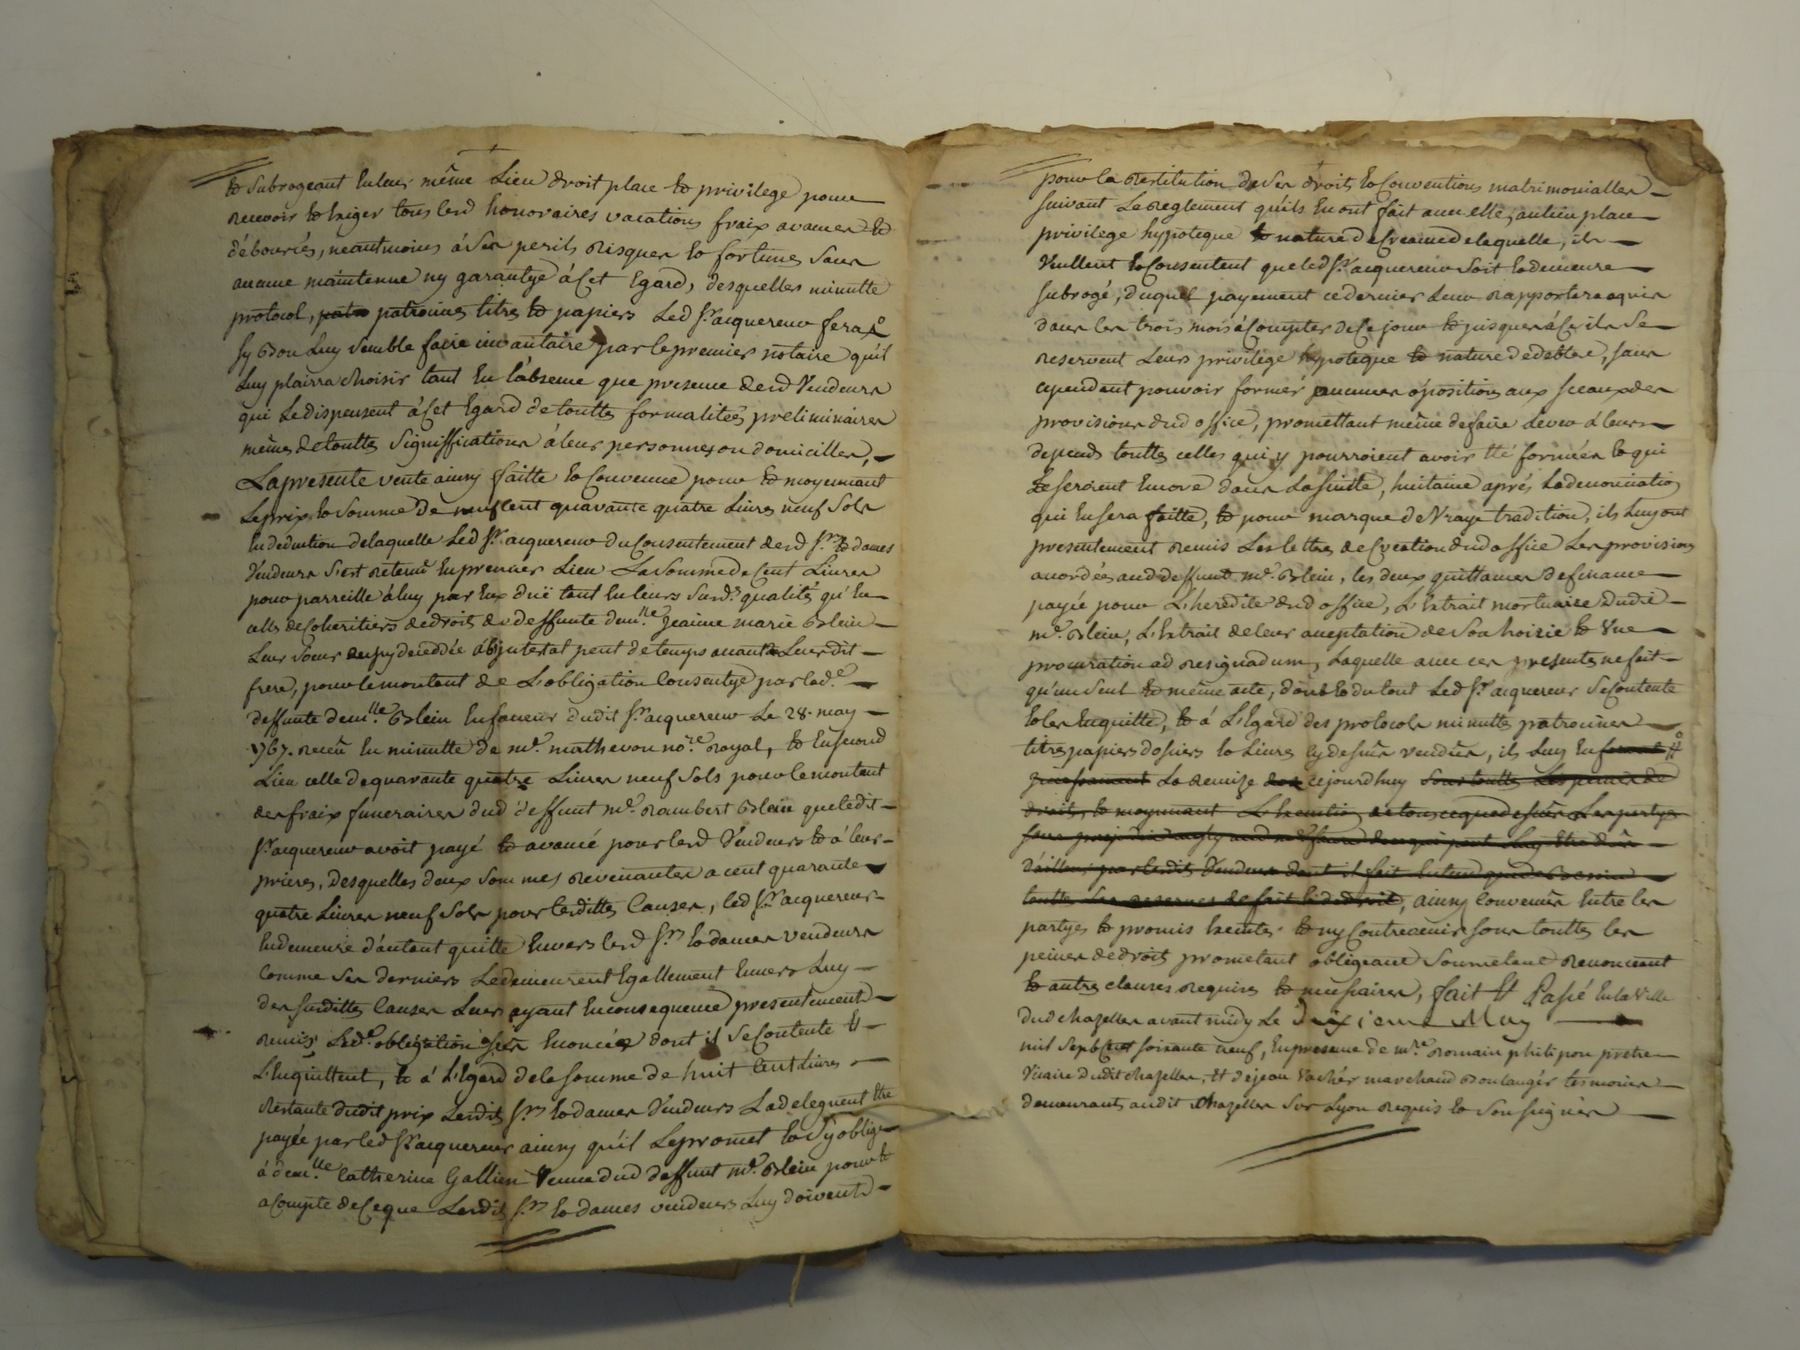 et subrogeant en leur même lieu droit place et privilege pour
recevoir et exiger tous lesd honoraires vacations frais avances et
débourcés, neantmoins à ses perils risques et fortunes sans
aucune maintenue ny garantye à cet egard, desquelles minutte
protocol, patrocines titres et papiers led sr. acquereur fera
sy bon luy semble faire invantaire par le premier notaire qu'il
luy plairra choisir tant en l'absence que presence desd vendeurs
qui le dispensent à cet egard de touttes formalités preliminaires
mêmes de touttes signiffications à leurs personnes ou domicilles,
La presente vente ainsy faitte et convenue pour et moyennant
le prix et somme de neuf cent quarante quatre livres neuf sols
en deduction de laquelle led sr. acquereur du consentement desd srs. et dames
vendeurs s'est retenu en premier lieu la somme de cent livres
pour parreille à luy par eux düe tant en leurs susd. qualités qu'en
celle de coheritiers de droits de deffunte demlle. jeanne marie Blein
leur soeur decedée ab intestat peut de temps avant leurdit
frere, pour le montant de l'obligation consentye par lade.
deffunte demlle. Blein en faveur dudit sr. acquereur le 28. may
1767. receu en minutte de me. mathevon nore. royal, et en second
lieu celle de quarante quatre livres neuf sols pour le montant
des fraix funeraires dud deffunt me. rambert Blein que ledit
sr. acquereur avoit payé et avancé pour lesd vendeurs et à leurs
prieres, desquelles deux sommes revenantes a cent quarante
quatre livres neuf sols pour lesdittes causes, led sr. acquereur
en demeure d'autant quitte envers lesd srs. et dames vendeurs
comme ses derniers le demeurent egallement envers luy
des susdittes causes leurs ayant en consequence presentement
remis lade. obligation enoncée dont il se contente et
l'enquittent, et à l'egard de la somme de huit cent livres
restante dudit prix lesdits srs. et dames vendeurs la deleguent etre
payée par led sr. acquereur ainsy qu'il le promet et s'y oblige
à demlle. catherine Gallien veuve dud deffunt me. Blein pour et
a compte de ce que lesdits srs. et dames vendeurs luy doivent
pour la restitution de ses droits et conventions matrimonialles
suivant le reglement qu'ils en ont fait avec elle, au lieu place
privilege hypoteque et nature de creance de laquelle, ils
veullent et consentent que led sr. acquereur soit et demeure
subrogé, duquel payement ce dernier leur rapportera aquis
dans les trois mois à compter de ce jour et jusques à ce ils se
reservent leurs privilege hypoteque et nature de debte, sans
cependent pouvoir former aucunes opositions aux sceaux des
provisions dud office, promettant même de faire lever à leurs
depends touttes celles qui y pourroient avoir été formées et qui
se seroient encore dans la suitte, huitaine aprés la denonciation
qui en sera faitte, et pour marque de vraye tradition, ils luy ont
presentement remis les lettres de creation dud office les provisions
accordées aud deffunt me. Blein, les deux quittances de finance
payée pour l'heredité dud office, l'extrait mortuaire dudit
me. Blein, l'extrait de leur acceptation de son hoirie et une
procuration ad resignadum, laquelle avec ces presentes ne fait
qu'un seul et même acte, dont et du tout led sr. acquereur se contente
et les enquitte, et à l'egard des protocols minuttes patrocines
titres papiers dosiers et livres cy dessus vendus, ils luy en feront
la remize cejourd'huy sous touttes les peines de
droits, et moyennant
toutes les reserves de fait et de droit, ainsy convenu entre les
partyes et promis executer et ny contrevenir sous touttes les
peines de droits promettant obligeant soumetant renonceant
et autres clauses requises et necessaires, fait Et Passé en la ville
dud chazelles avant midy le Dixieme May
mil sept cent soixante neuf, en presence de mre. romain philipon pretre
vicaire dudit chazelles, Et de jean vachér marchand boulanger temoins
demeurants audit chazelles sur Lyon requis et soussignés